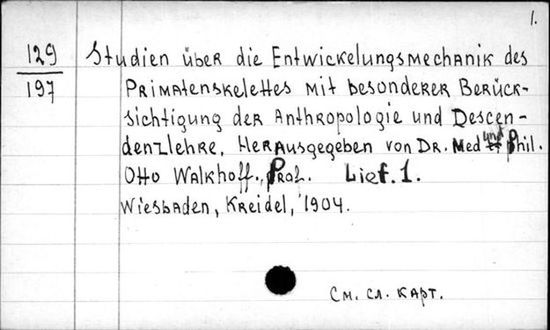 1.
129
197
Studien über die Entwickelungsmechanik des
Primatenskelettes mit besonderer Berück-
sichtigung der Anthropologie und Descen-
denzlehre, Herausgegeben von Dr. Med und Phil.
Otto Walkhoff., Prof. Lief. 1.
Wiesbaden, Kreidel, 1904.
См. сл. карт.